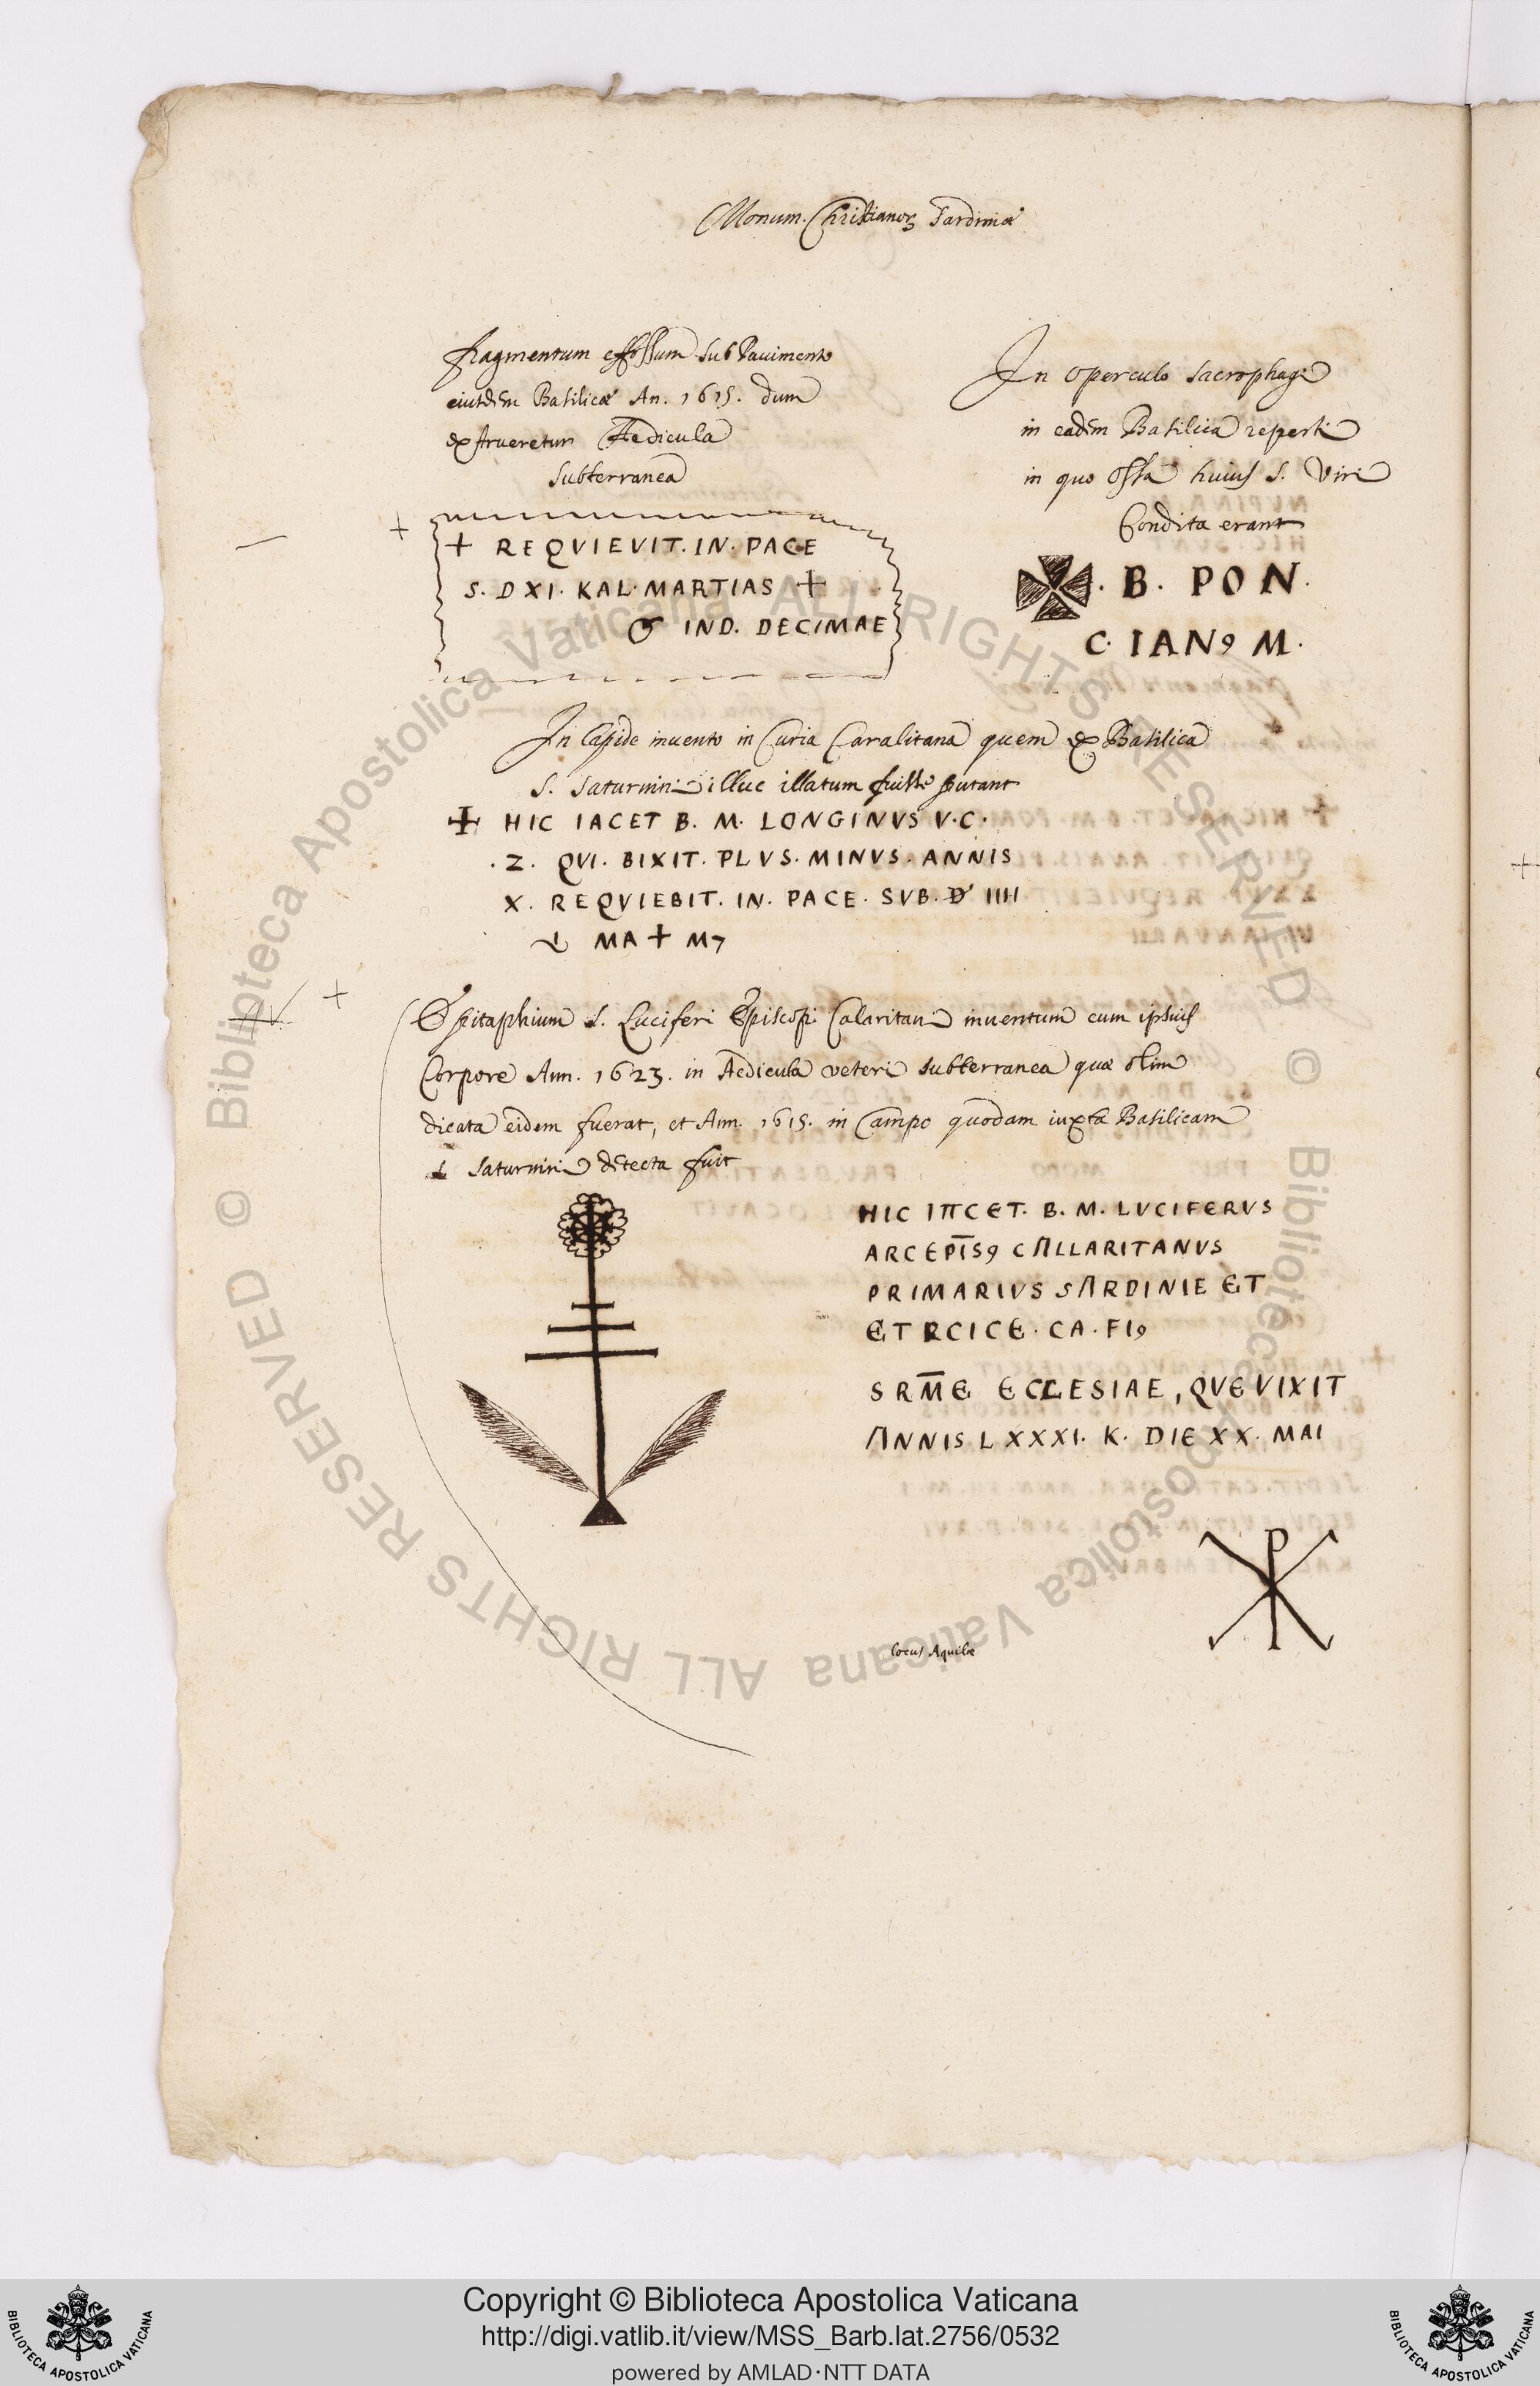 Monum. Christianoꝝ Sardiniæ
fragmentum effossum sub Pauimento
eiusdem Basilicæ An. 1615. dum
exstrueretur Aedicula
subterranea
+ REQVIEVIT. IN. PACE
S. D XI. KAL. MARTIAS +
IND. DECIMAE
In operculo sacrophagi
in eadem Basilica reperti
in quo ossa huius S. Viri
Condita erant
. B. PON.
C. IANꝯ M.
In lapide inuento in Curia Caralitana quem ex Basilica
S. Saturnini illuc illatum fuisse putant
+ HIC IACET B. M. LONGINVS V. C.
. Z. QVI. BIXIT. PLVS. MINVS. ANNIS
X. REQVIEBIT. IN. PACE. SVB. D IIII
MA + M7
Epitaphium S. Luciferi Episcopi Calaritani inuentum cum ipsius
Corpore Ann. 1623. in Aedicula veteri subterranea quæ olim
dicata eidem fuerat, et Ann. 1615. in Campo quodam iuxta Basilicam
S. Saturnini detecta fuit
HIC IACET. B. M. LVCIFERVS
ARCEPI̅Sꝯ CALLARITANVS
PRIMARIVS SARDINIE ET
ETRCICE. CA. FIꝯ
SRM̅E ECCLESIAE, QVE VIXIT
ANNIS LXXXI. K. DIE XX. MAI
locus Aquilæ
Biblioteca Apostolica Vaticana ALL RIGHTS RESERVED © Biblioteca Apostolica Vaticana ALL RIGHTS RESERVED ©
Copyright © Biblioteca Apostolica Vaticana
http://digi.vatlib.it/view/MSS_Barb.lat.2756/0532
powered by AMLAD·NTT DATA
BIBLIOTECA APOSTOLICA VATICANA
BIBLIOTECA APOSTOLICA VATICANA